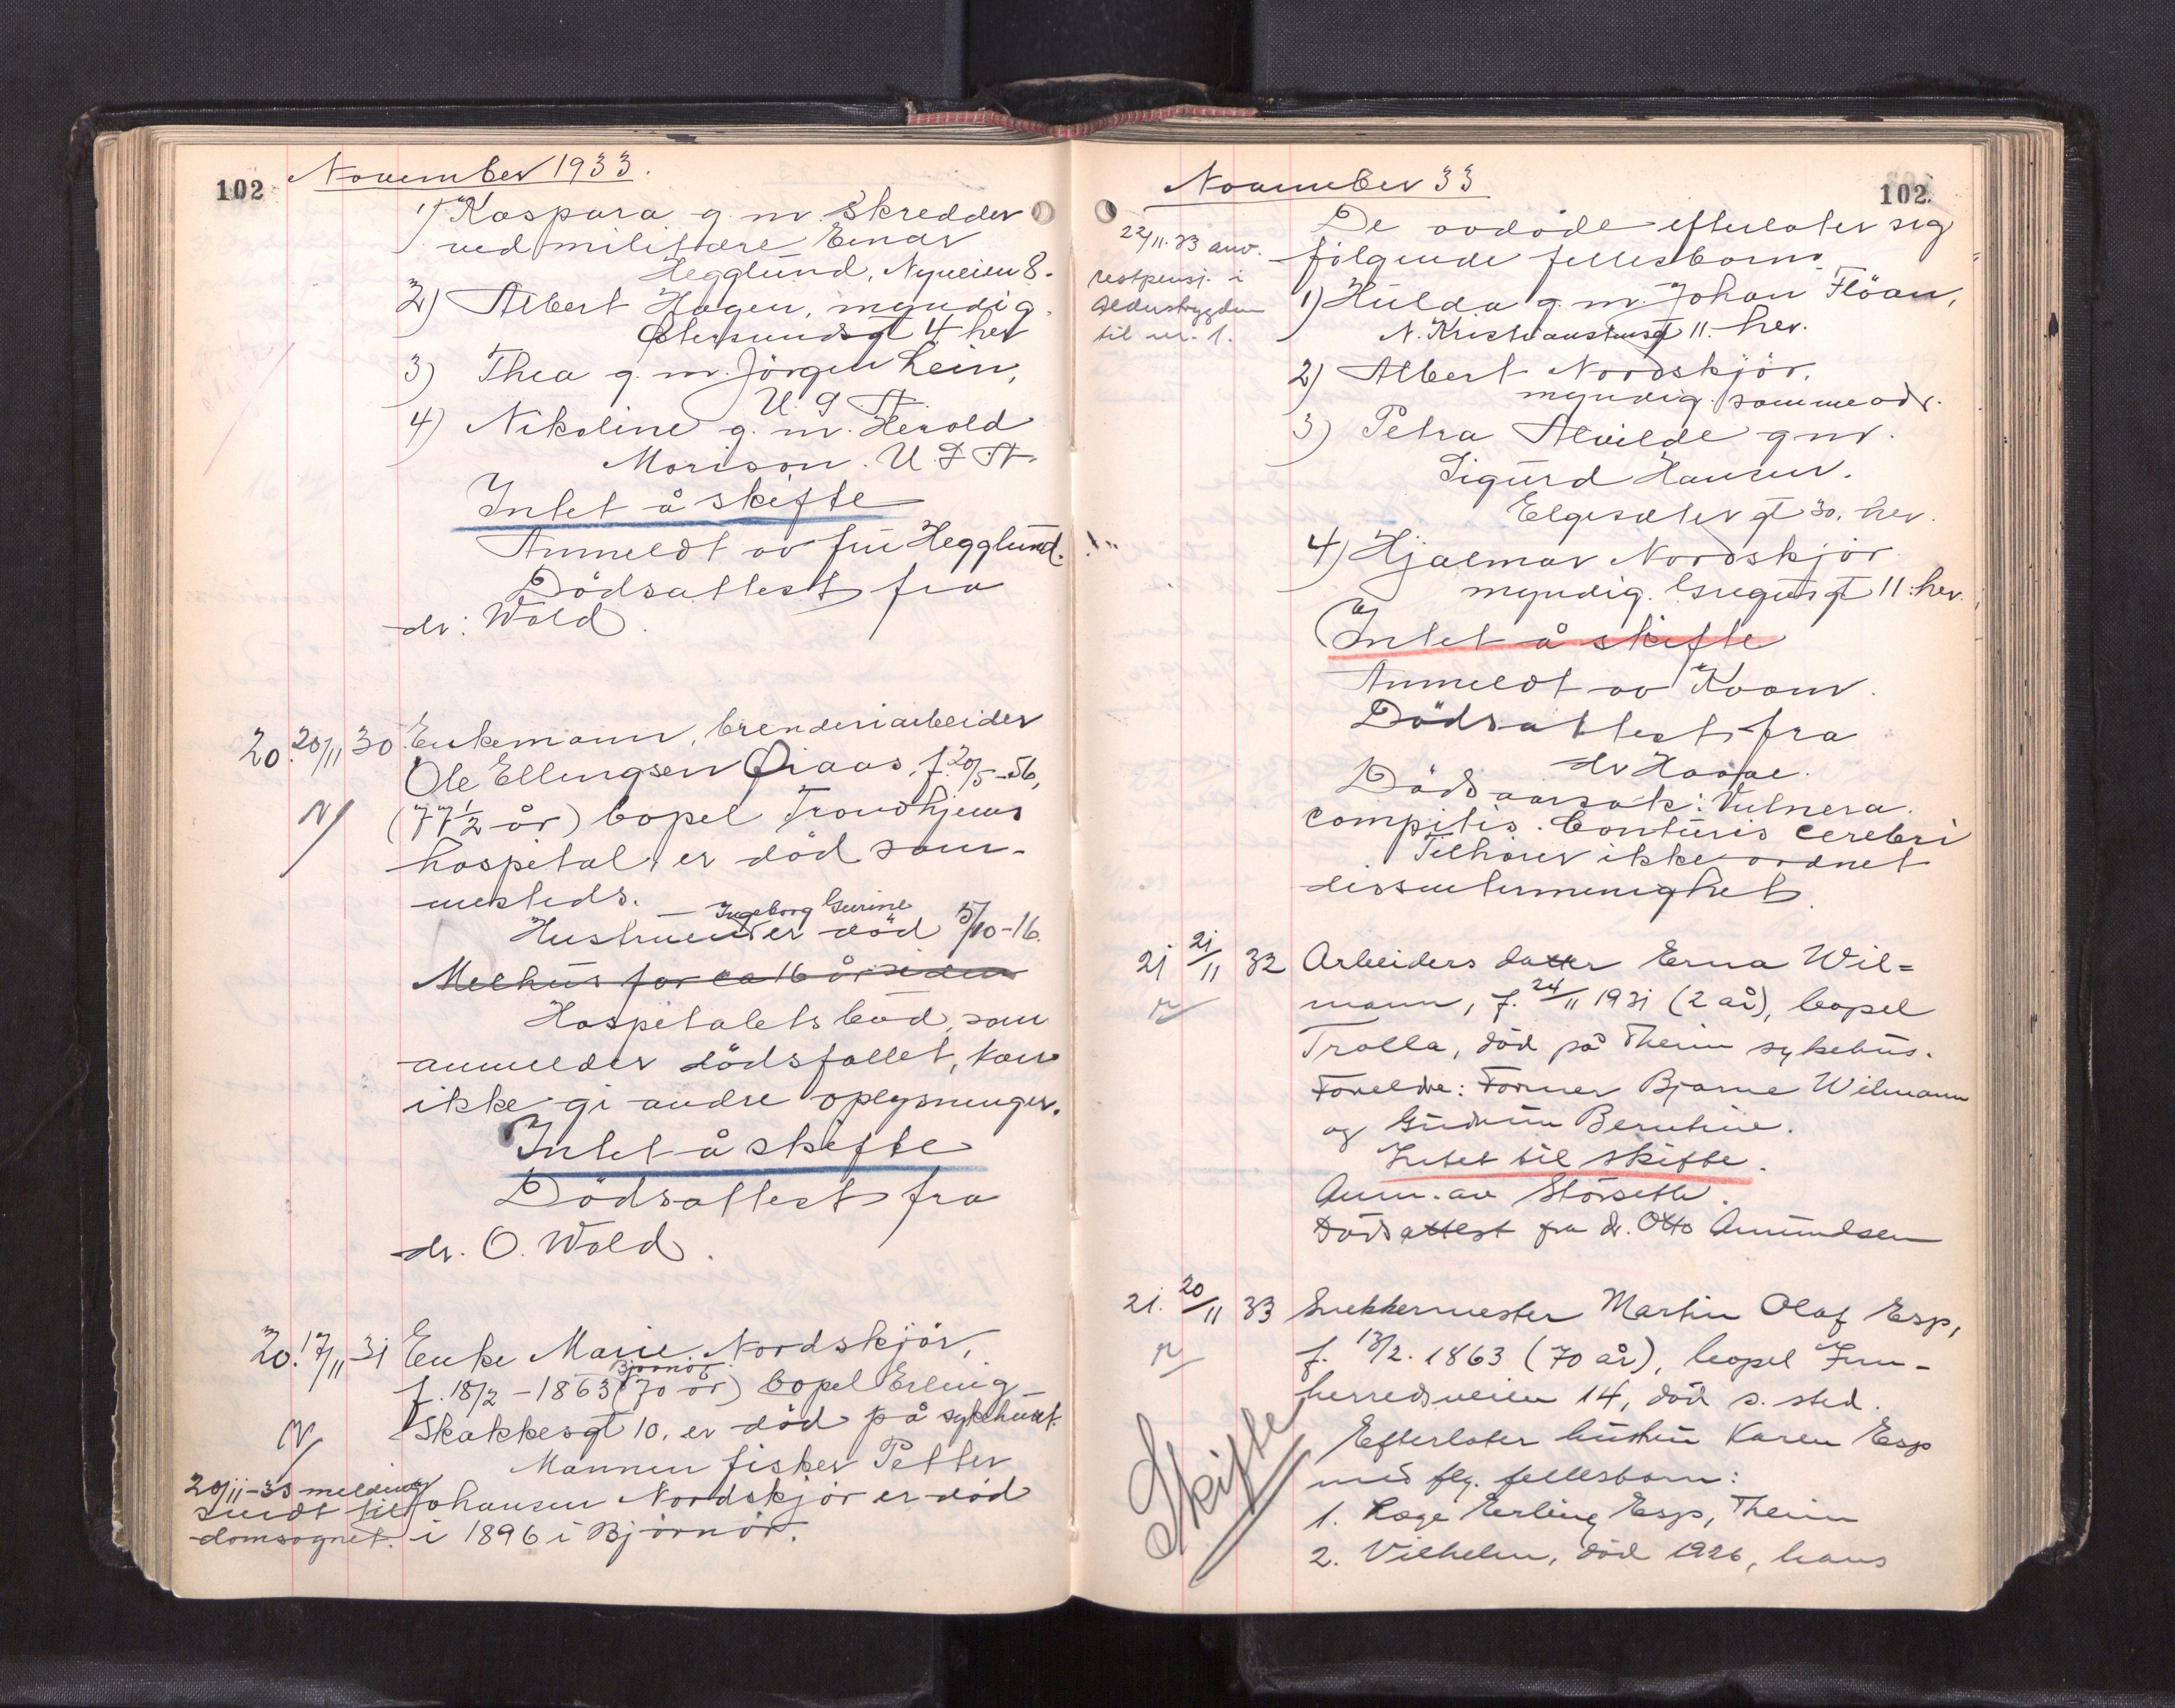 102
November 1933.
1) Kaspara g. m. Skredder
ved militære Einar
Hegglund, Nyveien 8.
2) Albert Hagen, myndig.
Østersundsgt 4 her
3) Thea g. m. Jörgen Lein,
U. S. A.
4) Nikoline g. m. Herold
Morison. U. S. A.
Intet å skifte
Anmeldt av fru Hegglund.
Dödsattest fra
dr. Wold.
20. 20/11 30 Enkemann, brenderiarbeider
Ole Ellingsen Öiaas, f. 20/5-56,
N (77 1/2 år) bopel Trondhjems
hospital, er död sam-
mesteds.
Ingeborg Gurine
Hustruen er död 5/10-16.
Melhus for ca 16 år siden
Hospitalets bud, som
anmelder dödsfallet, kan
ikke gi andre oplysninger.
Intet å skifte
Dödsattest fra
dr. O. Wold.
20. 17/11 31 Enke Marie Nordskjör,
Bjørnör
f. 18/2-1863 (70 år) bopel Erling
Skakkesgt 10, er död på sykehuset.
N Mannen fisker Petter
20/11-33 melding
sendt til Johansen Nordskjör er död
domsognet. i 1896 i Björnör.
November 33
102.
De avdöde efterlater sig
22/11.33 anv. følgende fellesbarn
restpensj. i
Alderstrygden
til nr. 1.
1) Hulda g. m. Johan Flöan,
N. Kristianstensgt 11. her.
2) Albert Nordskjör,
myndig. samme adr.
3) Petra Alvilde g m.
Sigurd Hansen.
Elgesetergt 30. her.
4) Hjalmar Nordskjör
myndig. Gregusgt 11. her.
Intet å skifte
Anmeldt av
Dödsattest fra
dr
Dödsaarsak: Vulnera
Cerebri
Tilhörer ikke ordnet
dissentermenighet
21 21/11 32 Arbeiders datter Erna Wil=
mann, f. 24/11 1931 (2 år), bopel
Trolla, död på Theim sykehus.
Foreldre: Former Bjarne Wilmann
og Gudrun Berntine.
Intet til skifte.
Anm. av Störseth.
Dödsattest fra dr. Otto Amundsen
21. 20/11 33 Snekkermester Martin Olaf Esp,
f. 13/2. 1863 (70 år), bopel Inn-
herredsveien 14, död s. sted.
Skifte
Efterlater hustru Karen Esp
med flg. fellesbarn:
1. Aage Erling Esp, Theim
2. Vilhelm, död 1926, hans